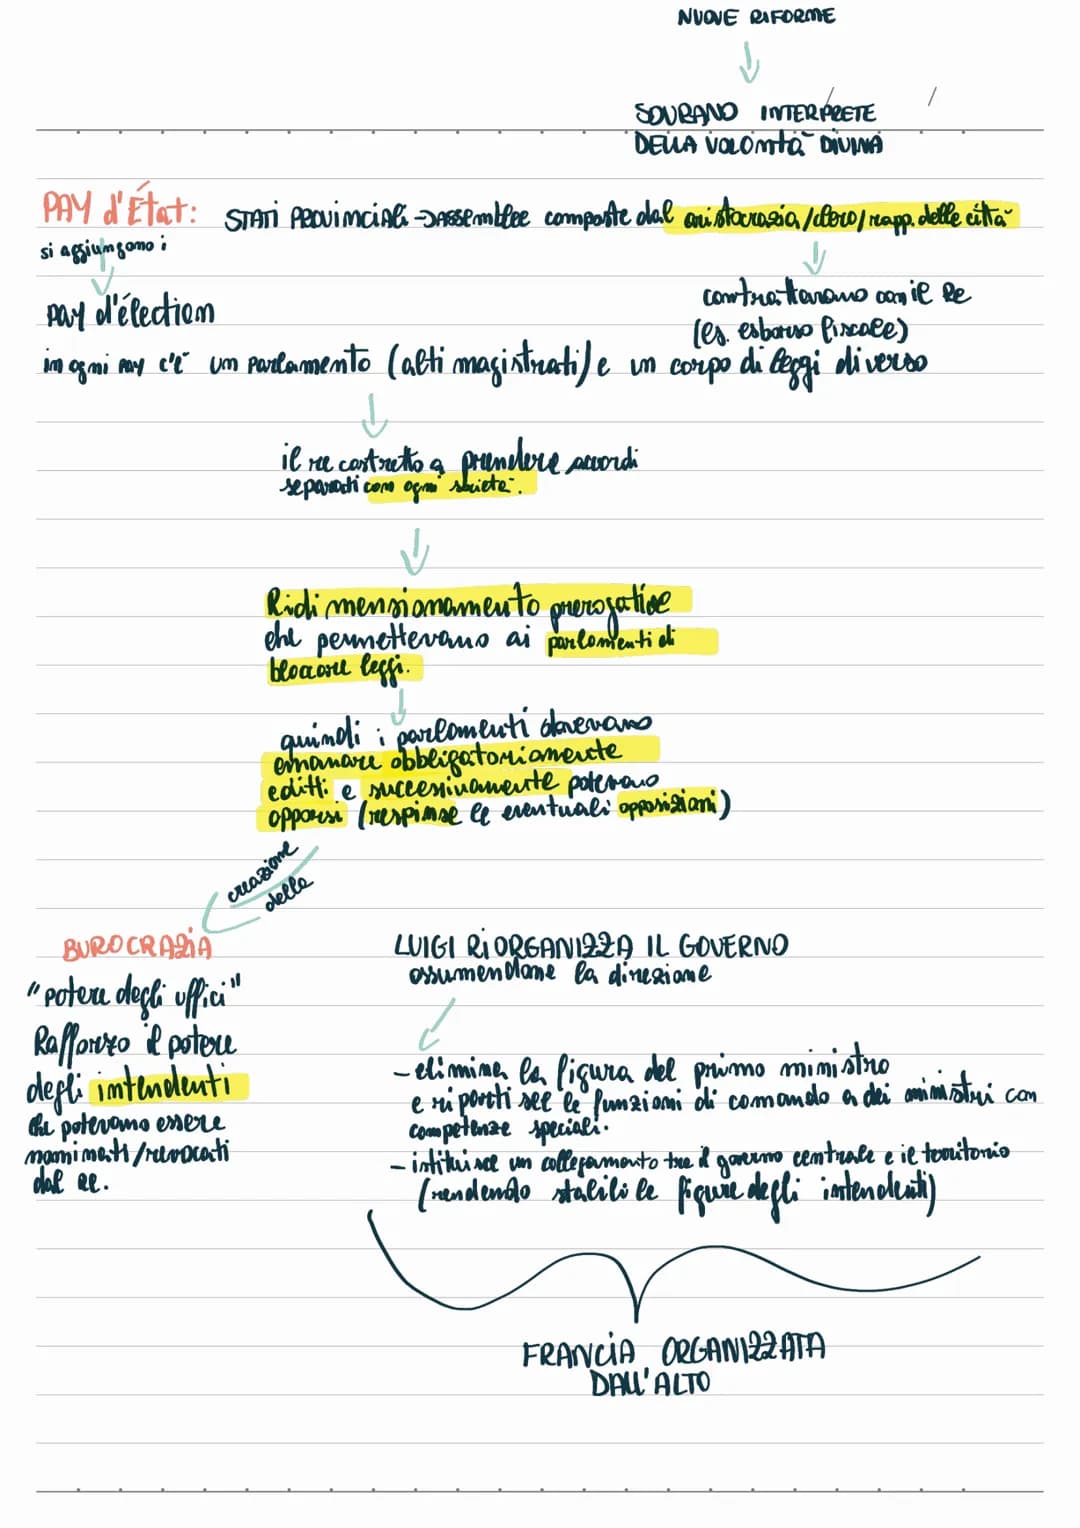 NUOVE RIFORME
SOVRANO INTERPRETE
DELLA VOLONTÀ DIVINA
PAY d'État: STATI PROVINCIALI → ASSEMBLEE composte dal aristocrazia/clero/rapp. delle città
si aggiungono i
contrattavano con il Re
pay d'élection
(es. esborso fiscale)
in ogni pay c'è un parlamento (alti magistrati) e un corpo di leggi diverso
il re costretto a prendere accordi
separati con ogni società.
Ridimensionamento prerogative
che permettevano ai parlamenti di
bloccare leggi.
quindi i parlamenti dovevano
emanare obbligatoriamente
editti e successivamente potevano
opporsi (respinse le eventuali opposizioni)
creazione
della
BUROCRAZIA
LUIGI RIORGANIZZA IL GOVERNO
assumendone la direzione
"potere degli uffici"
Rafforzo il potere
degli intendenti
che potevano essere
nominati/revocati
dal Re.
- elimina la figura del primo ministro
e ripartisce le funzioni di comando a dei ministri con
competenze speciali.
- istituisce un collegamento tra il governo centrale e il territorio
(rendendo stabili le figure degli intendenti)
FRANCIA ORGANIZZATA
DALL'ALTO